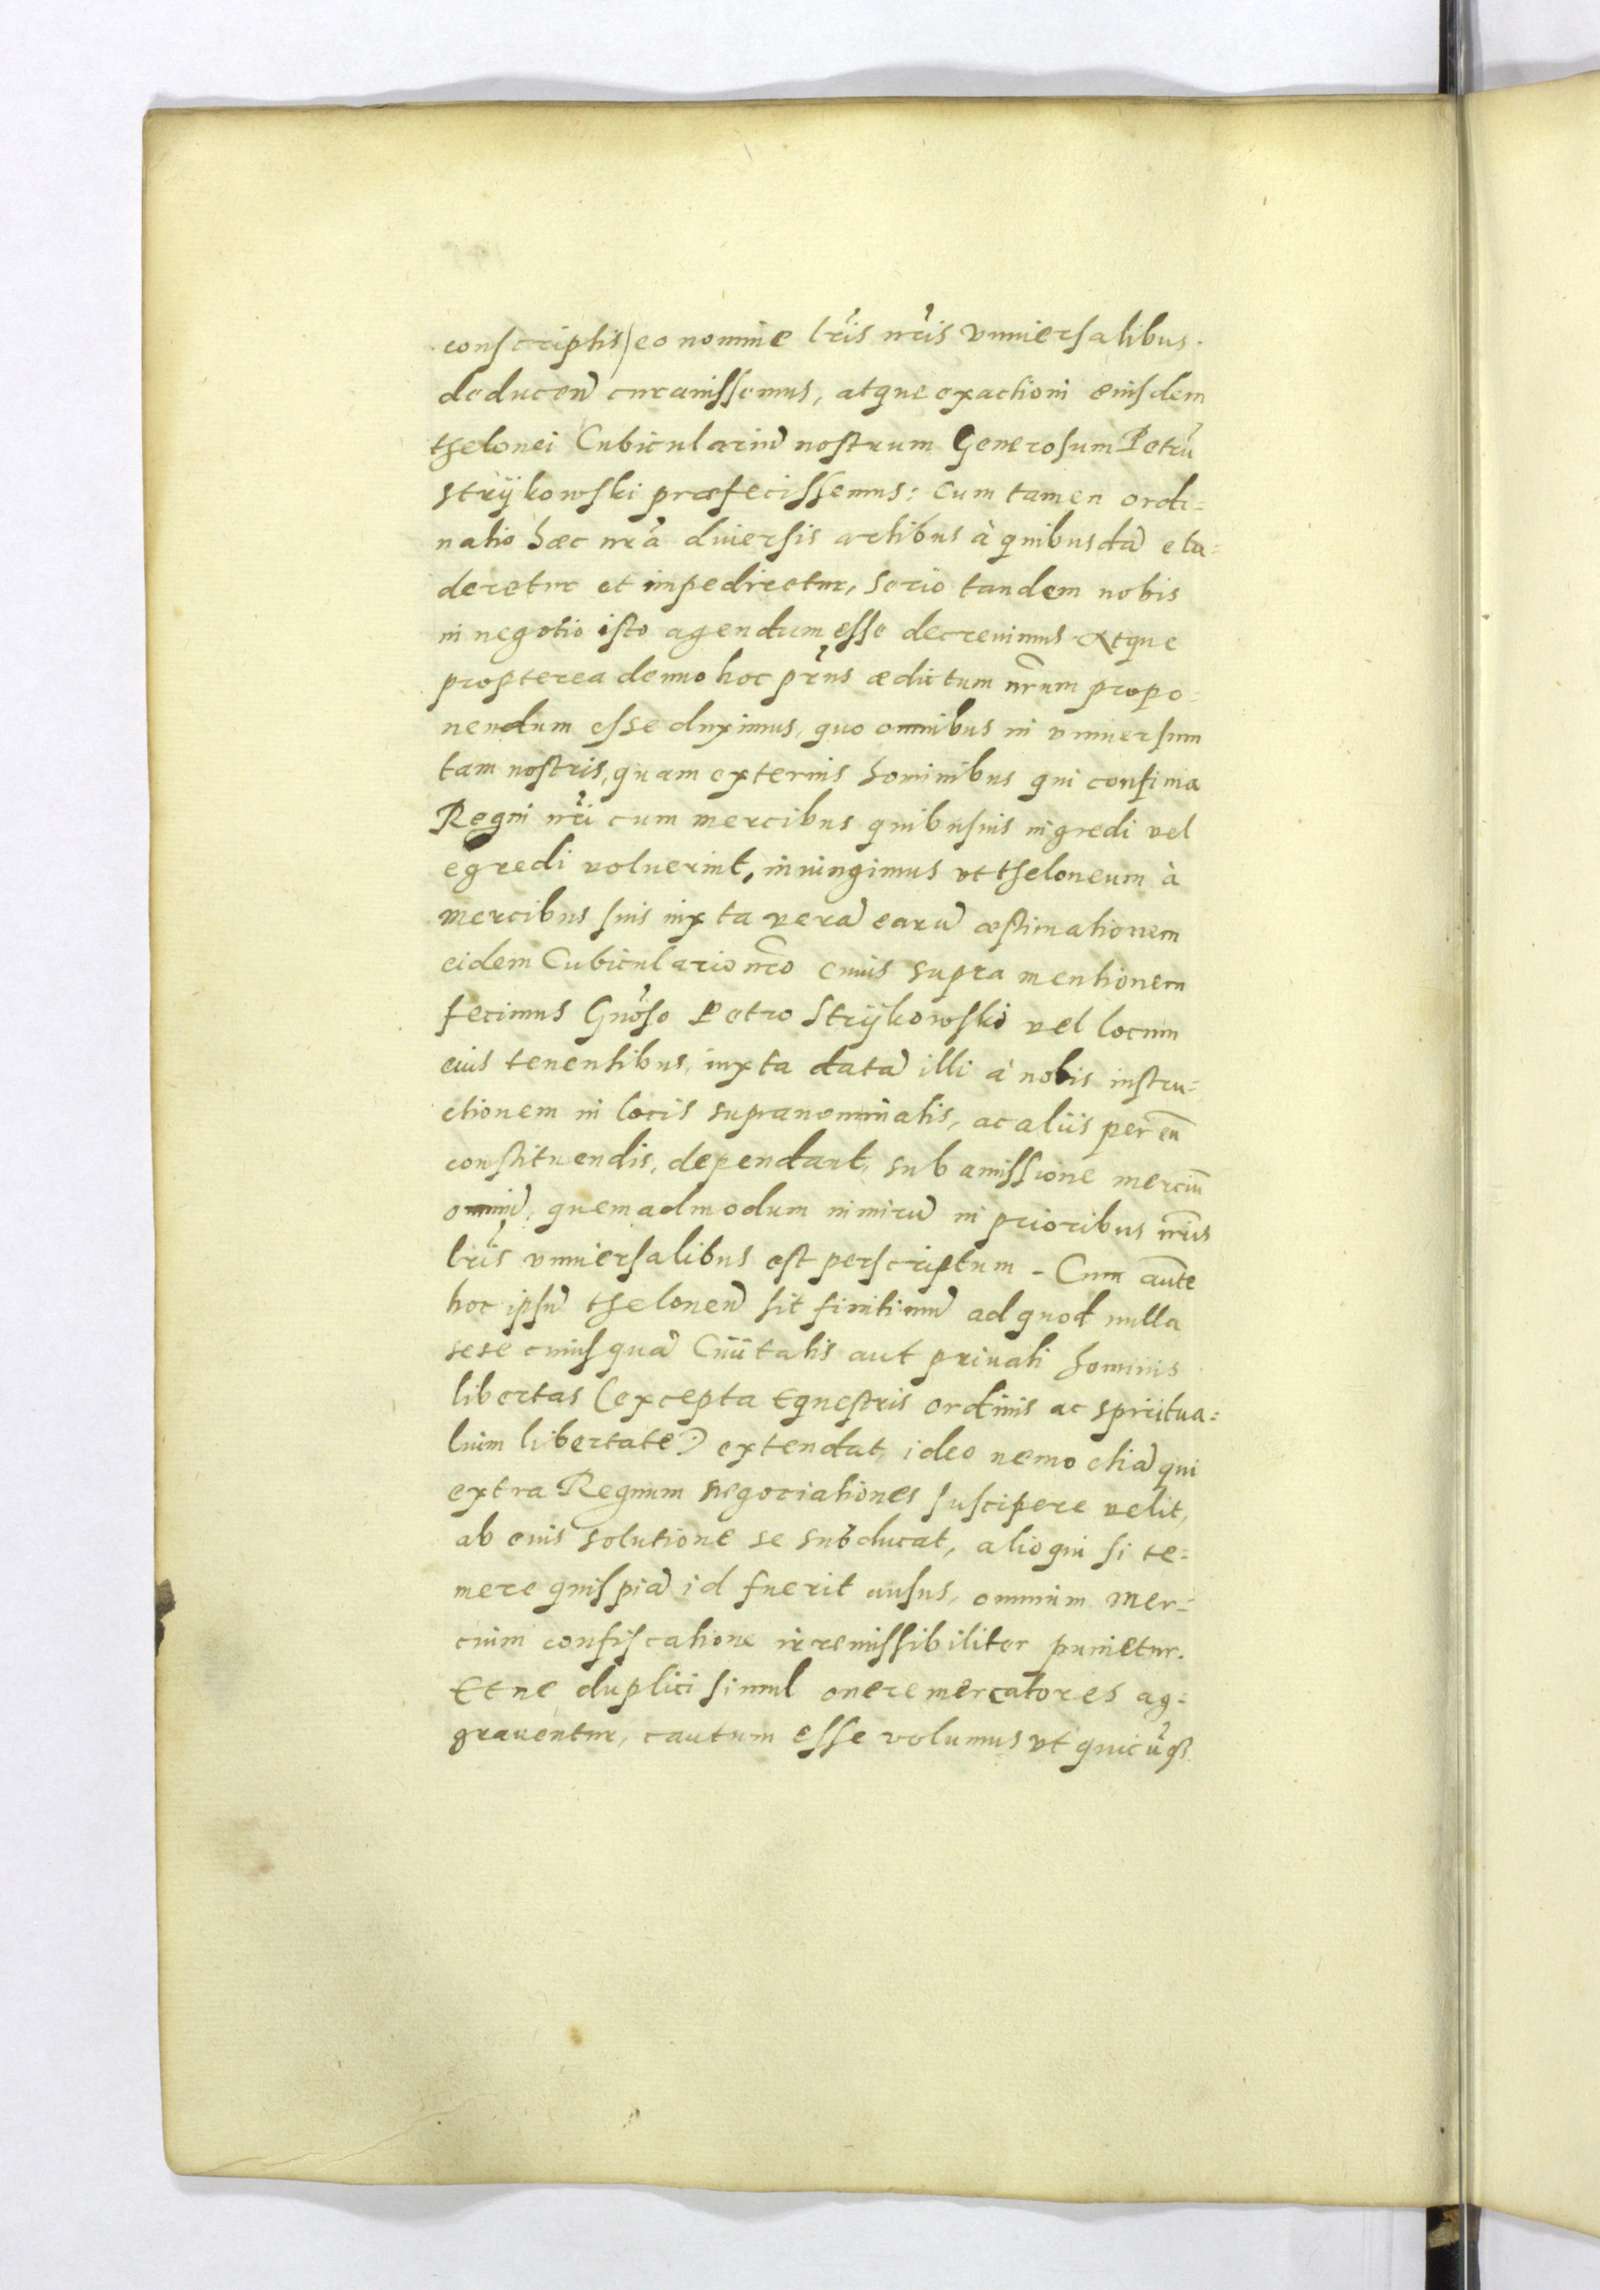 conscriptis) eo nomine lr̃is nr̃is vniuersalibus
deducend̃ curauissemus, atque exactioni eiusdem
thelonei Cubiculariũ nostrum Generosum Petrũ
Strÿkowski præfecissemus: cum tamen ordi=
natio hæc nr̃a diuersis artibus à quibusdã elu=
deretur et impediretur, serio tandem nobis
in negotio isto agendum esse decreuimus Atque
propterea denuo hoc pr̃ns ædictum nr̃um propo=
nendum esse duximus, quo omnibus in vniuersum
tam nostris, quam externis hominibus qui confinia
Regni nr̃i cum mercibus quibusuis ingredi vel
egredi voluerint, iniungimus vt theloneum à
mercibus suis iuxta verã earũ æstimationem
eidem Cubiculario nr̃o cuius supra mentionem
fecimus Gñoso Petro Strÿkowski vel locum
eius tenentibus, iuxta datã illi à nobis instru=
ctionem in locis supranominatis, ac aliis per eũ
constituendis, dependant, sub amissione merciũ
omniũ, quemadmodum nimirũ in prioribus nr̃is
lr̃is vniuersalibus est perscriptum - Cum aũte
hoc ipsũ theloneũ sit finitimũ ad quod nulla
sese cuiusquã Ciuitatis aut priuati hominis
libertas (excepta Equestris ordinis ac spiritua=
lium libertate) extendat, ideo nemo etiã qui
extra Regnum negociationes suscipere velit,
ab eius solutione se subducat, alioqui si te=
mere quispiã id fuerit ausus, omnium mer=
cium confiscatione irremissibiliter punietur.
Et ne duplici simul onere mercatores ag=
grauentur, cautum esse volumus vt quicũqȝ